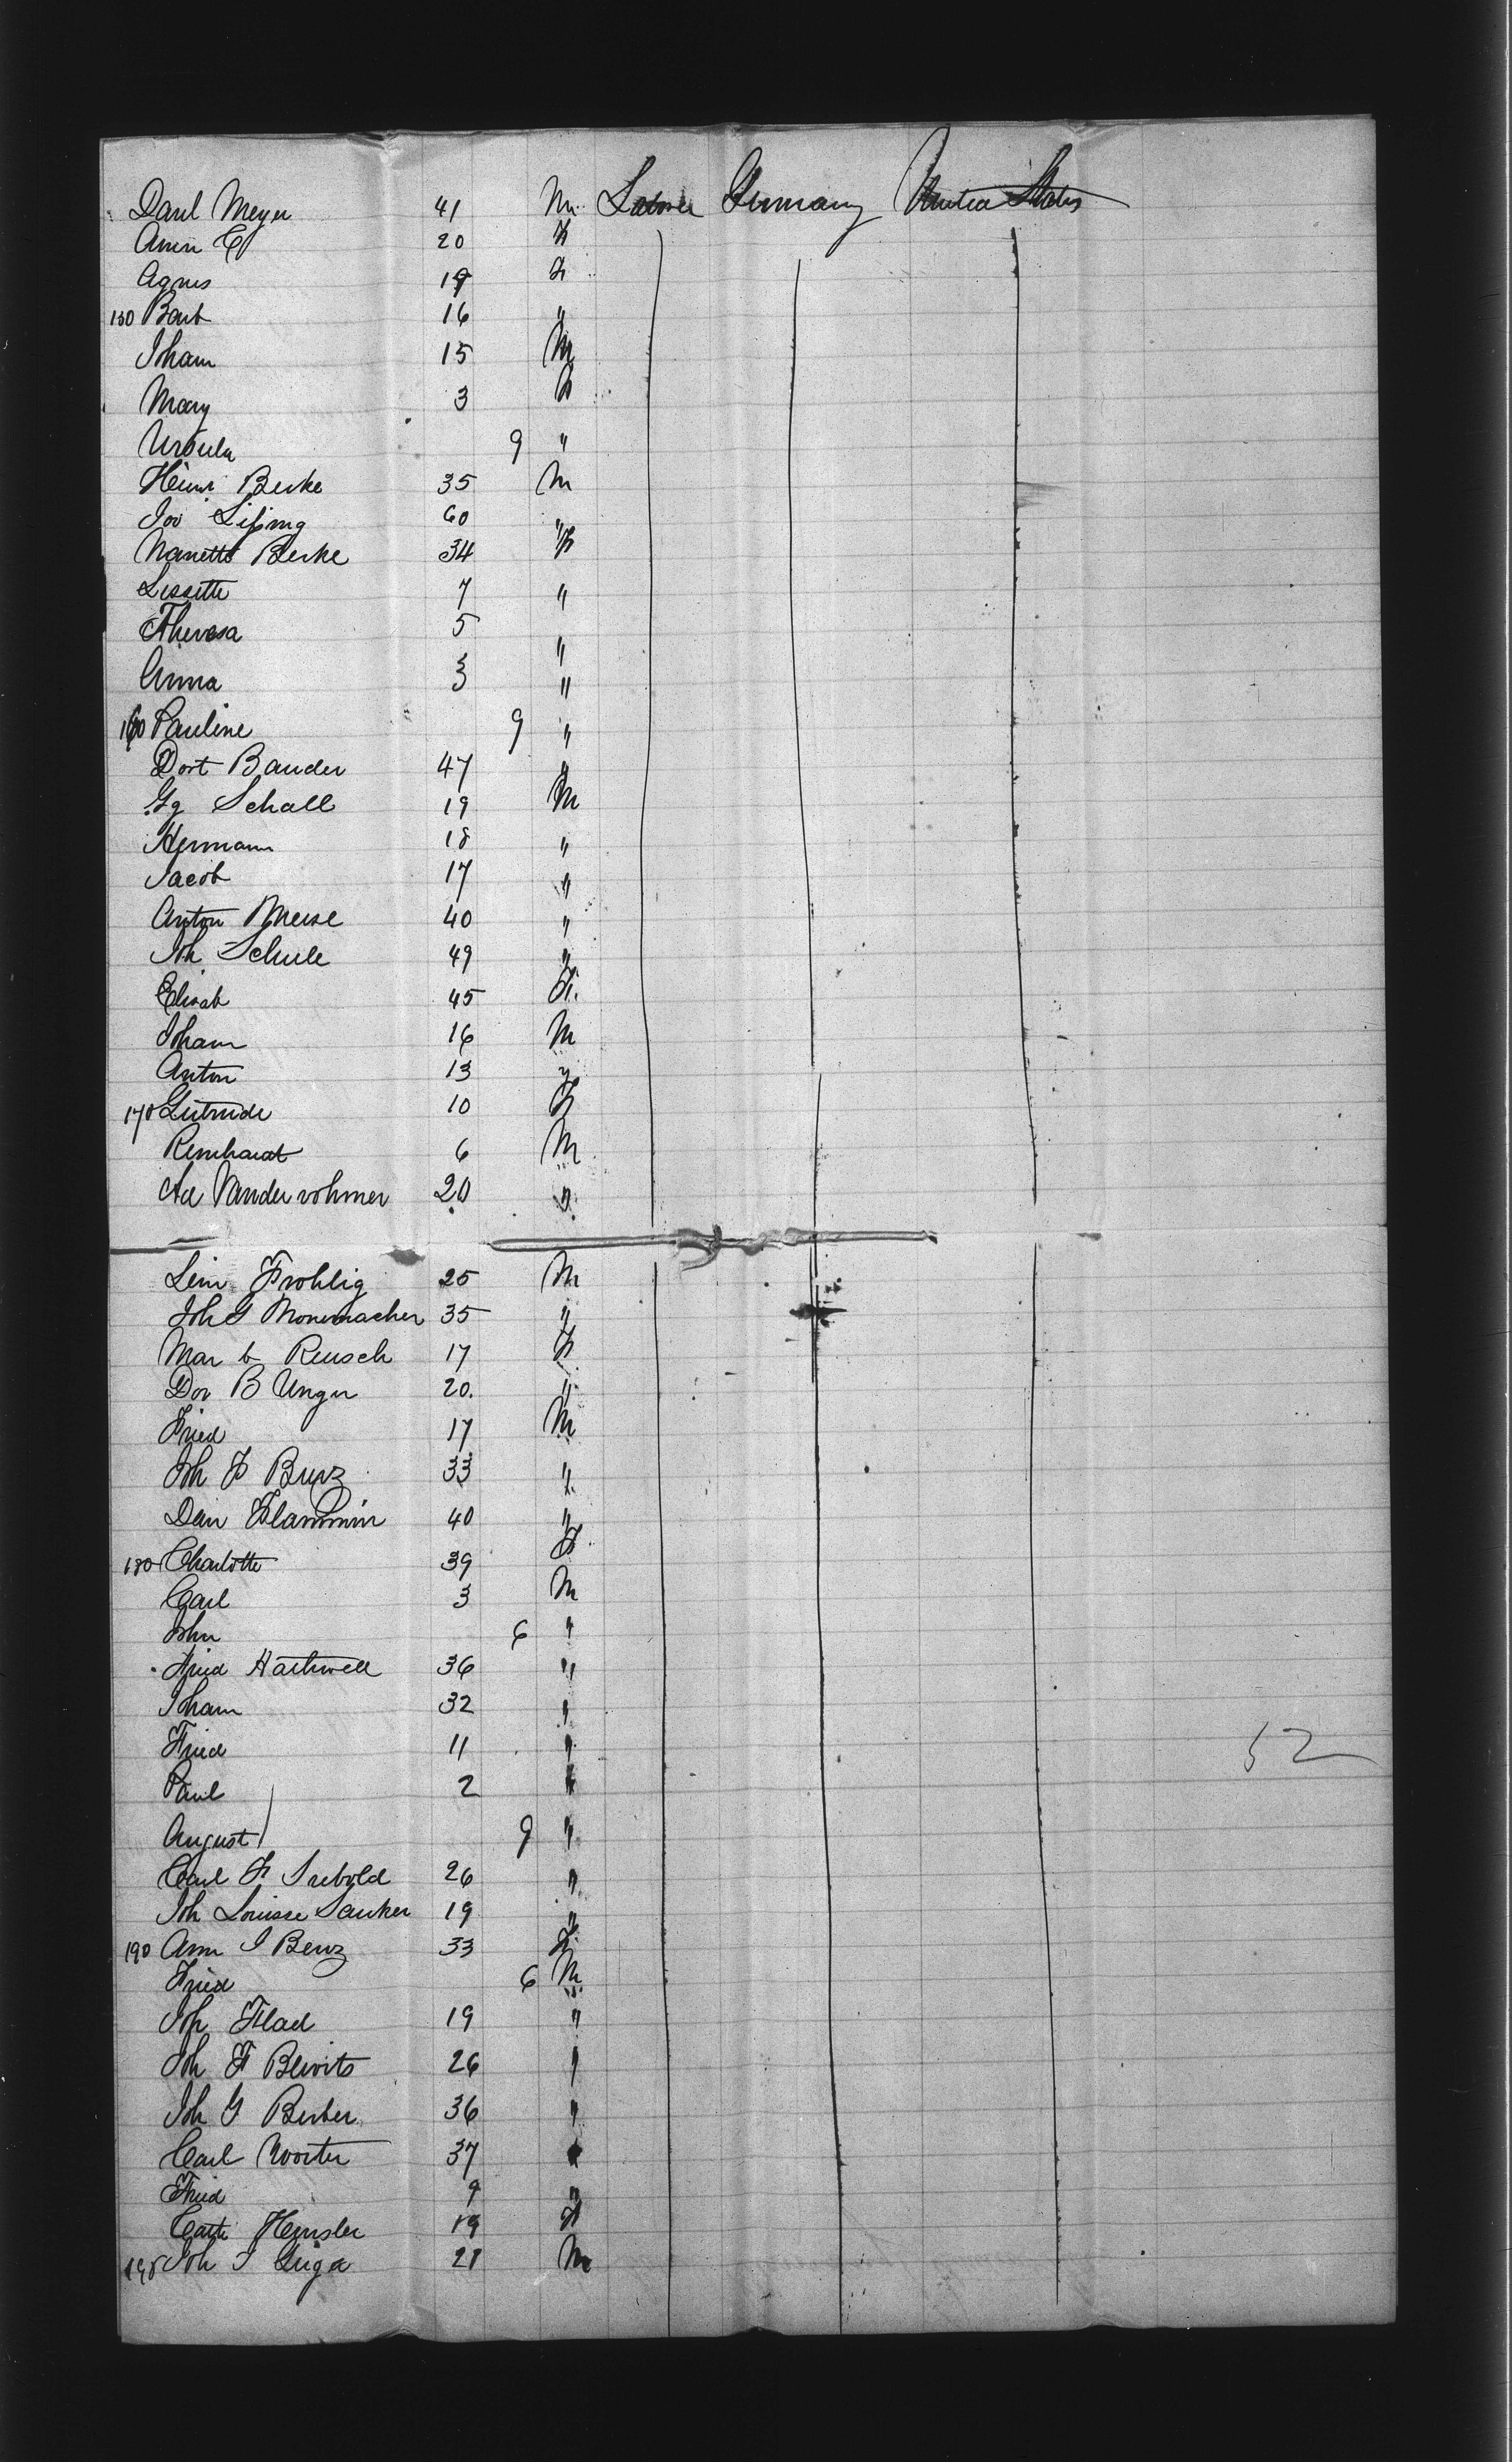 Paul Meyer 41 M Laborer Germany United States
Ann C 20 F
Agnes 19 F
150 Barb 16 "
Joham 15 M
Mary 3 F
Ursula 9 "
Heinr Berke 35 M
Jos 60 "
Nanette Berke 34 F
Lissette 7 "
Theresa 5 "
Anna 3 "
160 Pauline 9 "
Dort Bauder 47 "
Gg Schall 19 M
Hermann 18 "
Jacob 17 "
Anton Meise 40 "
Joh Schule 49 "
Elisab 45 F.
Joham 16 M
Anton 13 "
170 Gertrude 10 F
Reinhardt 6 M
Ad Vandervohmer 20 "
Frohlig 25 M
Joh G Monemacher 35 "
Mar b Reusch 17 F
Dor B Unger 20. "
Fried 17 M
Joh F Benz 33 "
Dan Flammin 40 "
180 Charlotte 39 F
Carl 3 M
John 6 "
Fried Hartwell 36 "
Joham 32 "
Fried 11 "
Paul 2 "
August 9 "
Carl F Seebold 26 "
Joh Louisse Sanker 19 "
190 Ann J Benz 33 F
Fried 6 M
Joh Flad 19 "
Joh F Blevits 26 "
Joh G Berber 36 "
Carl Worter 37 "
Fried 9 "
Cath Hensler 19 F
198 Joh J Geiga 21 M
52